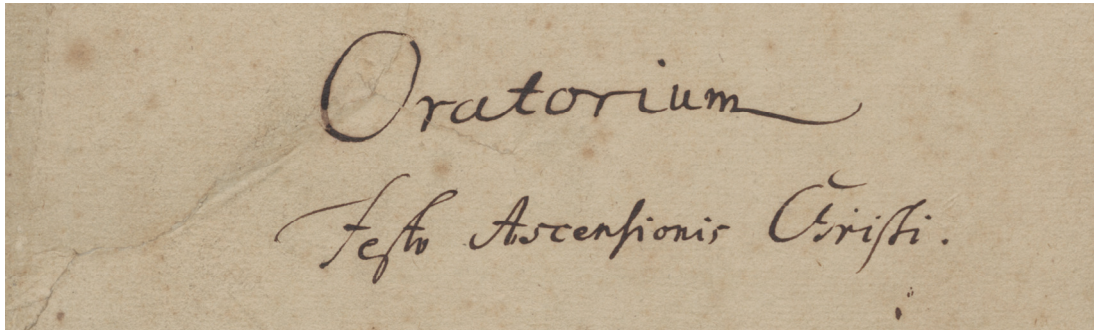 Oratorium
Festo Ascensionis Christi.